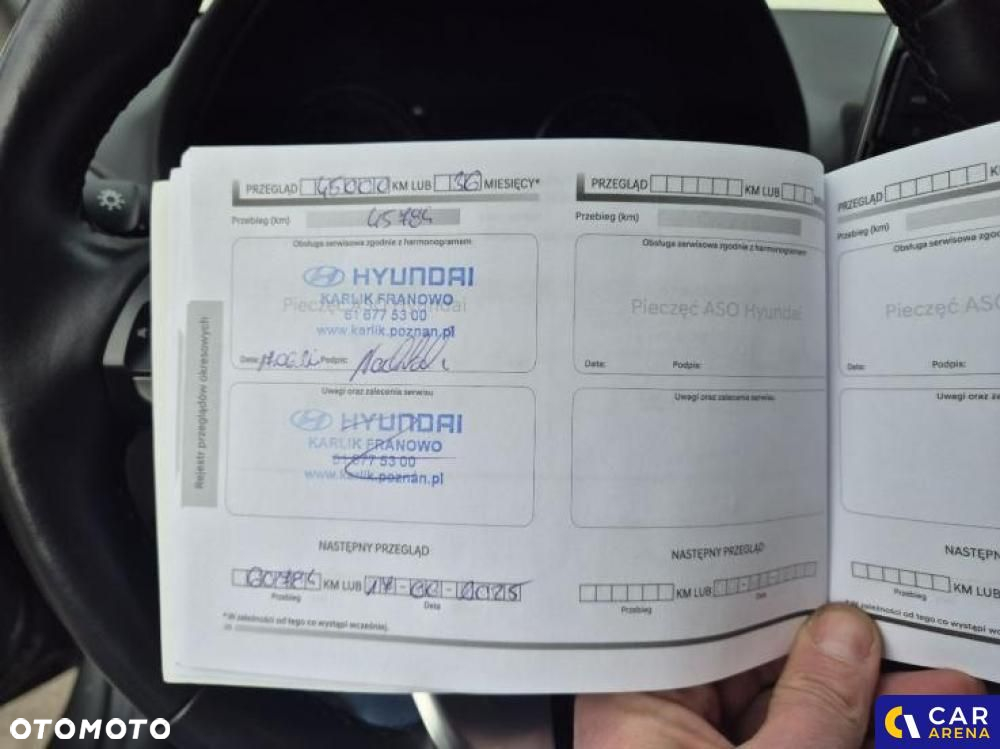 PRZEGLĄD 45000 KM LUB 36 MIESIĘCY*
Przebieg (km) 45784
Obsługa serwisowa zgodnie z harmonogramem
Pieczęć ASO Hyundai
HYUNDAI
KARLIK FRANOWO
61 877 53 00
www.karlik.poznan.pl
Data: Podpis:
Uwagi oraz zalecenia serwisu
HYUNDAI
KARLIK FRANOWO
61 877 53 00
www.karlik.poznan.pl
NASTĘPNY PRZEGLĄD
60784 KM LUB 17-06-2025
Przebieg Data
*W zależności od tego co wystąpi wcześniej.
Rejestr przeglądów okresowych
PRZEGLĄD KM LUB
Przebieg (km)
Obsługa serwisowa zgodnie z harmonogramem
Pieczęć ASO Hyundai
Data: Podpis:
Uwagi oraz zalecenia serwisu
NASTĘPNY PRZEGLĄD
KM LUB
Przebieg Data
PRZEGLĄD K
Przebieg (km)
Obsługa serwisowa zgo
Pieczęć ASO
Data: Podpis:
Uwagi oraz za
NASTĘPN
KM LUB
Przebieg
*W zależności od tego co wystąpi wc
OTOMOTO
CAR
ARENA